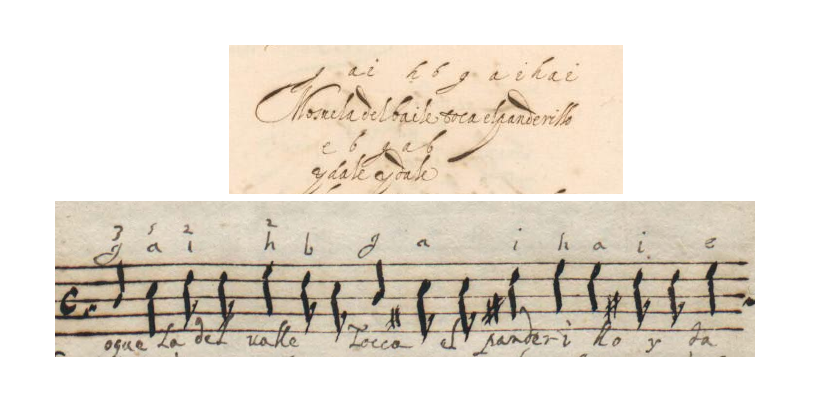 g ai h b g a i h a i
Mosuela del baile toca el panderillo
e b g a b
y dale y dale
3 5 2 2
g a i h b g a i h a i e
ogue la del valle Tocca el panderi ho y da